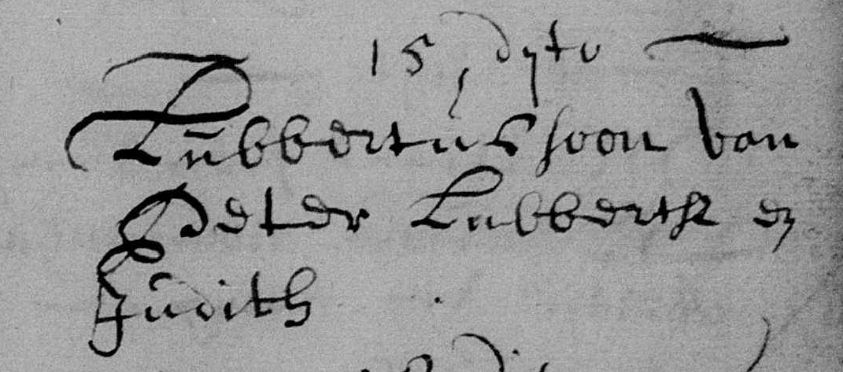 15 dyto
Lubbertus soon van
Peter Lubbertsz en
Judith